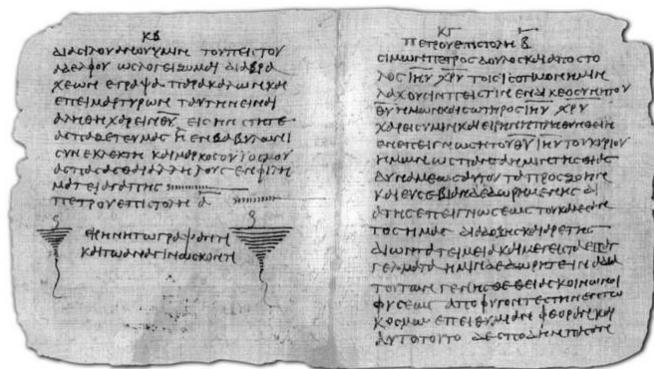 ΚΒ
διασιλουανουυμιν τουπιστου
αδελφου ωσλογειζομαι διαβρα
χεων εγραψα παρακαλων και
επειμαρτυρων ταυτην ειναι
αληθη χαρειν θ̅υ̅ εις ην στητε
ασπαζετε υμας η εν βαβυλωνι
συνεκλεκτη και μαρκος ο υιος μου
ασπασασθαι αλληλους εν φιλη
ματι αγαπης
πετρου επιστολη α̅
ειρηνη τω γραψαντι
και τω αναγινωσκοντι
ΚΓ
πετρου επιστολη β̅
σιμων πετρος δουλος και αποστο
λος ι̅η̅υ̅ χ̅ρ̅υ̅ τοις ισοτιμον ημιν
λαχουσιν πιστιν εν δικεοσυνη του
θ̅υ̅ ημων και σωτηρος ι̅η̅υ̅ χ̅ρ̅υ̅
χαρις υμιν και ειρηνη πληθυνθειη
εν επειγνωσει του θ̅υ̅ ι̅η̅υ̅ του κυριου
ημων ως παντα ημιν της θειας
δυναμεως αυτου τα προς ζωην
και ευσεβιαν δεδωρημενης δι
α της επειγνωσεως του καλεσαν
τος ημας δια δοξης και αρετης
δι ων τα τειμεια και μεγειστα επαγ
γελματα ημιν δεδωρητε ινα δια
τουτων γενησθε θειας κοινωνοι
φυσεως αποφυγοντες την εν τω
κοσμω επειθυμιαν φθορας και
αυτο τουτο δε σπουδην πασαν